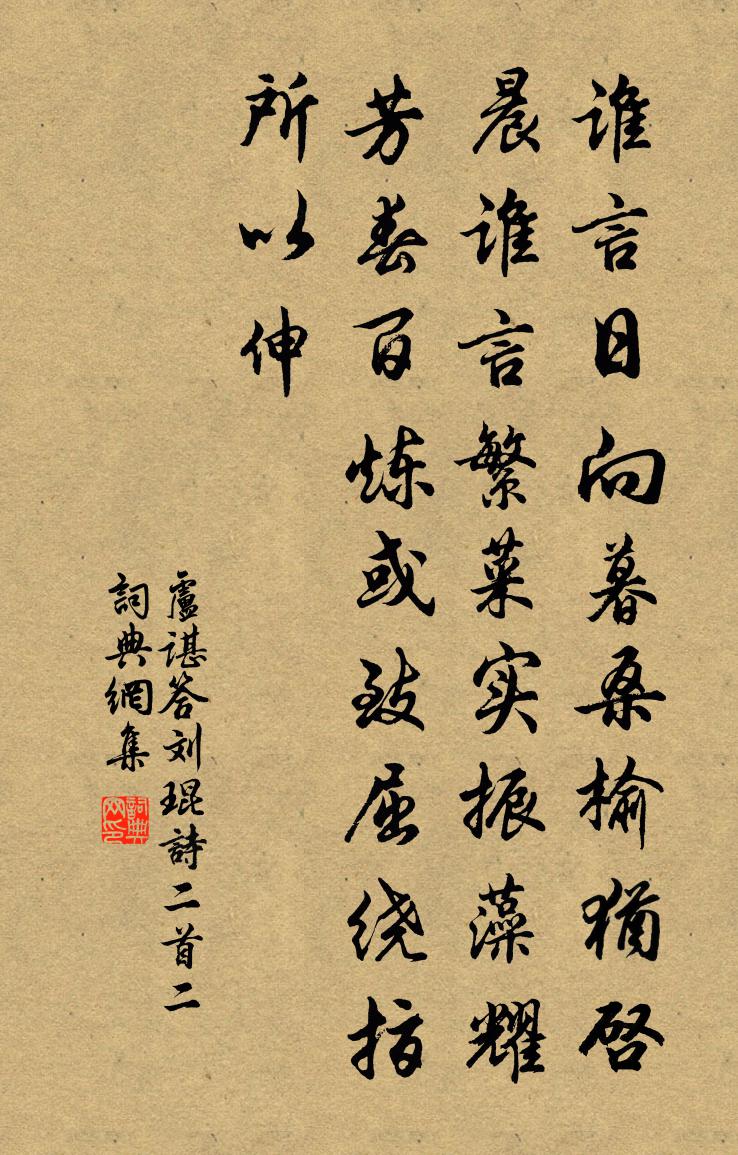 谁言日向暮桑榆犹启
晨谁言繁菜实振藻耀
芳春百炼或致屈绕指
所以伸
盧諶答刘琨詩二首二
詞典網集
詞典网印